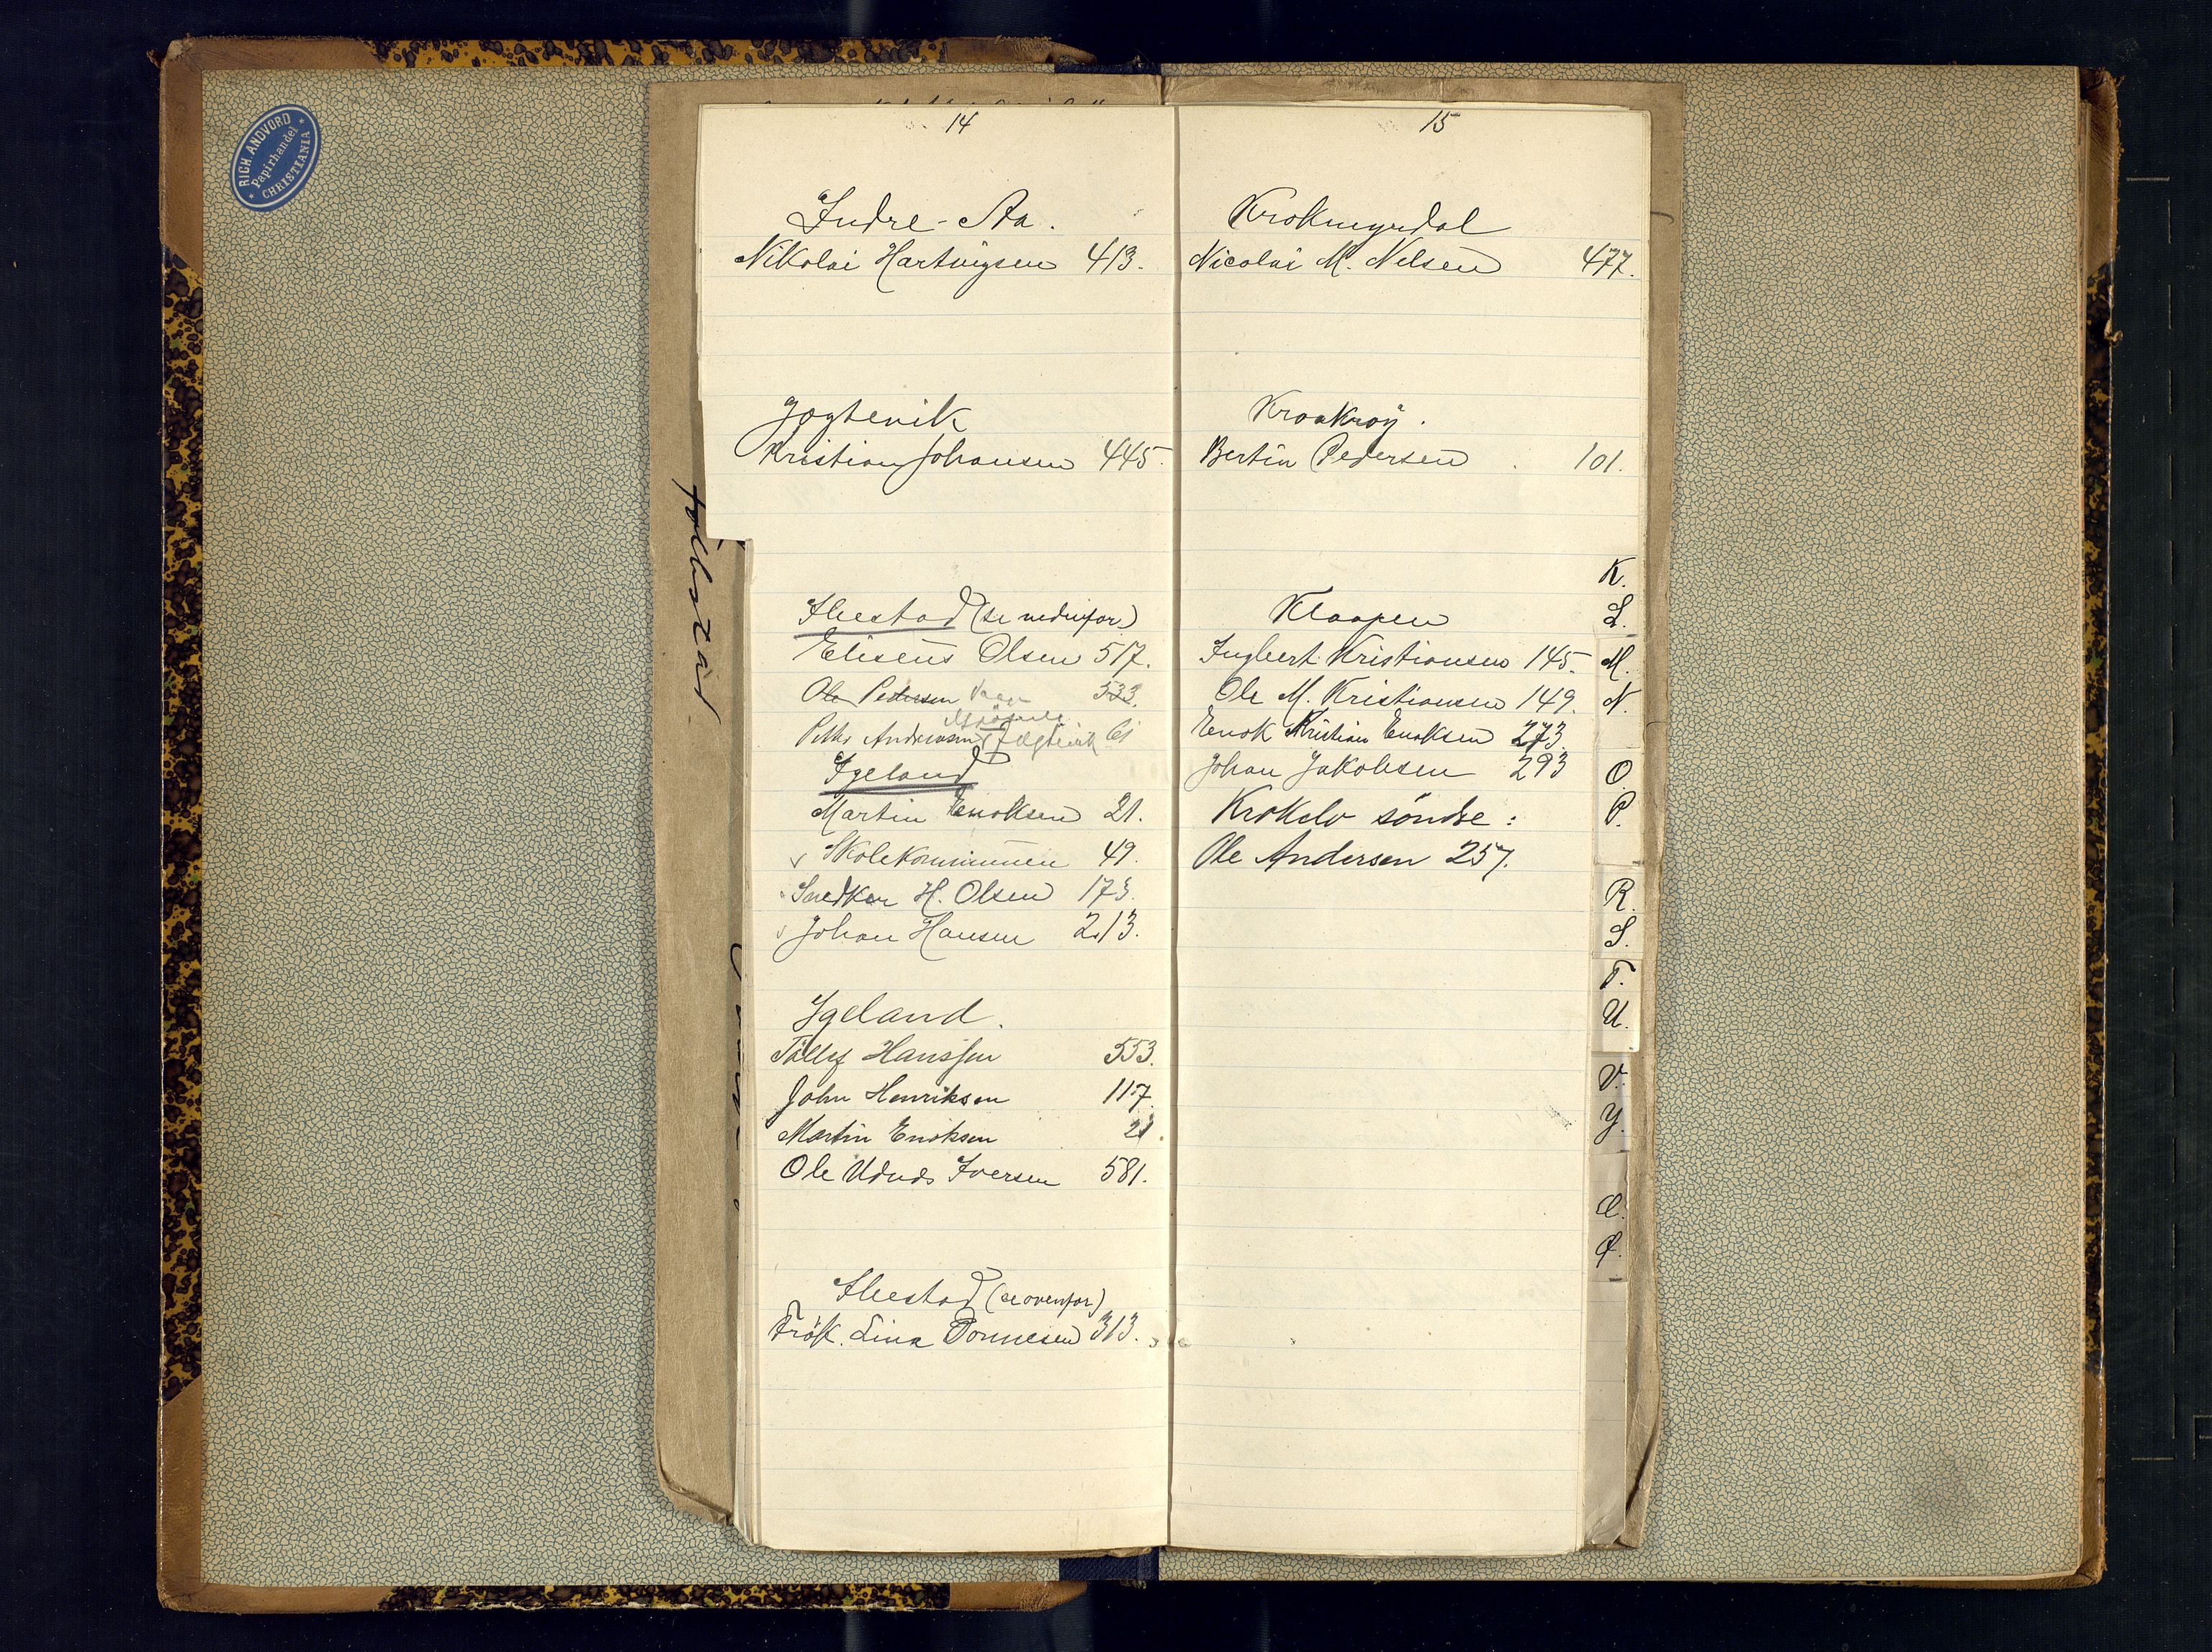 RICH. ANDVORD
Papirhandel
CHRISTIANIA
14
Indre-Aa.
Nikolai Hartvigsen 413.
Jægtevik
Kristian Johansen 445.
Ilestad (se nedenfor)
Eliseus Olsen 517.
Ole Pedersen 533.
Peder Andreassen Jægtevik 61
Igeland
Martin Enoksen 21.
v Skolekommunen 49.
Snedker H. Olsen 173.
v Johan Hansen 213.
Igeland.
Tollef Hanssen 553.
John Henriksen 117.
Martin Enoksen 21.
Ole Iversen 581.
Ilestad (se ovenfor)
Frøk. Lina Tønnesen 313.
15
Krokmyrdal
Nicolai M. Nilsen 477.
Kraakrøy.
Bertin Pedersen 101.
Klaapen
Ingbert Kristiansen 145.
Ole M. Kristiansen 149.
Enok Kristian Enoksen 273
Johan Jakobsen 293
Krokelv söndre:
Ole Andersen 257.
K.
L.
M.
N.
O.
P.
R.
S.
T.
U.
V.
Y.
Æ.
Ø.